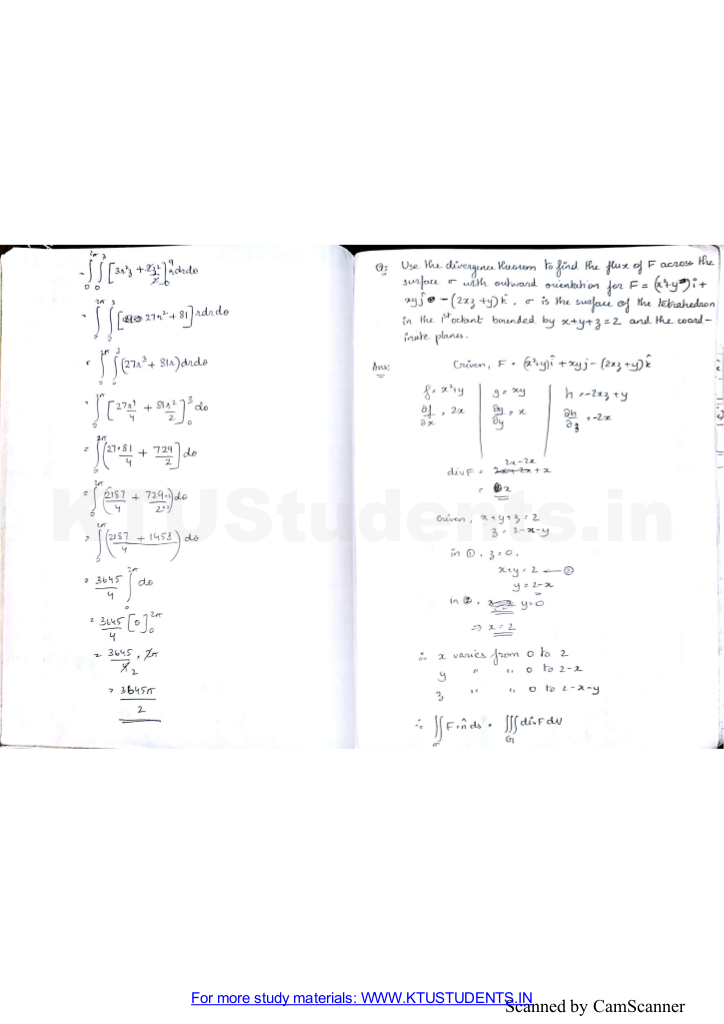 = ∫₀^2π ∫₀^3 [3r²z + 2z²/2]₀^9 r dr dθ
= ∫₀^2π ∫₀^3 [27r² + 81] r dr dθ
= ∫₀^2π ∫₀^3 (27r³ + 81r) dr dθ
= ∫₀^2π [27r⁴/4 + 81r²/2]₀^3 dθ
= ∫₀^2π (27·81/4 + 729/2] dθ
= ∫₀^2π (2187/4 + 729×2/2×2) dθ
= ∫₀^2π (2187 + 1458/4) dθ
= 3645/4 ∫₀^2π dθ
= 3645/4 [θ]₀^2π
= 3645/4₂ . 2π
= 3645π/2
Q: Use the divergence theorem to find the flux of F across the
surface σ with outward orientation for F = (x²+y)i +
xyj - (2xz+y)k, σ is the surface of the tetrahedron
in the 1st octant bounded by x+y+z=2 and the coord-
inate planes.
Ans: Given, F = (x²+y)î + xyj - (2xz+y)k̂
f = x²+y | g = xy | h = -2xz+y
∂f/∂x = 2x | ∂g/∂y = x | ∂h/∂z = -2x
2x-2x
div F = 2x+2x+x
= x
Given, x+y+z=2
z = 2-x-y
in ①, z=0,
x+y = 2 ②
y = 2-x
in ②, y=0
⇒ x = 2
∴ x varies from 0 to 2
y " " 0 to 2-x
z " " 0 to 2-x-y
∴ ∬σ F·n̂ ds = ∭G div F dV
KTUStudents.in
For more study materials: WWW.KTUSTUDENTS.IN
Scanned by CamScanner